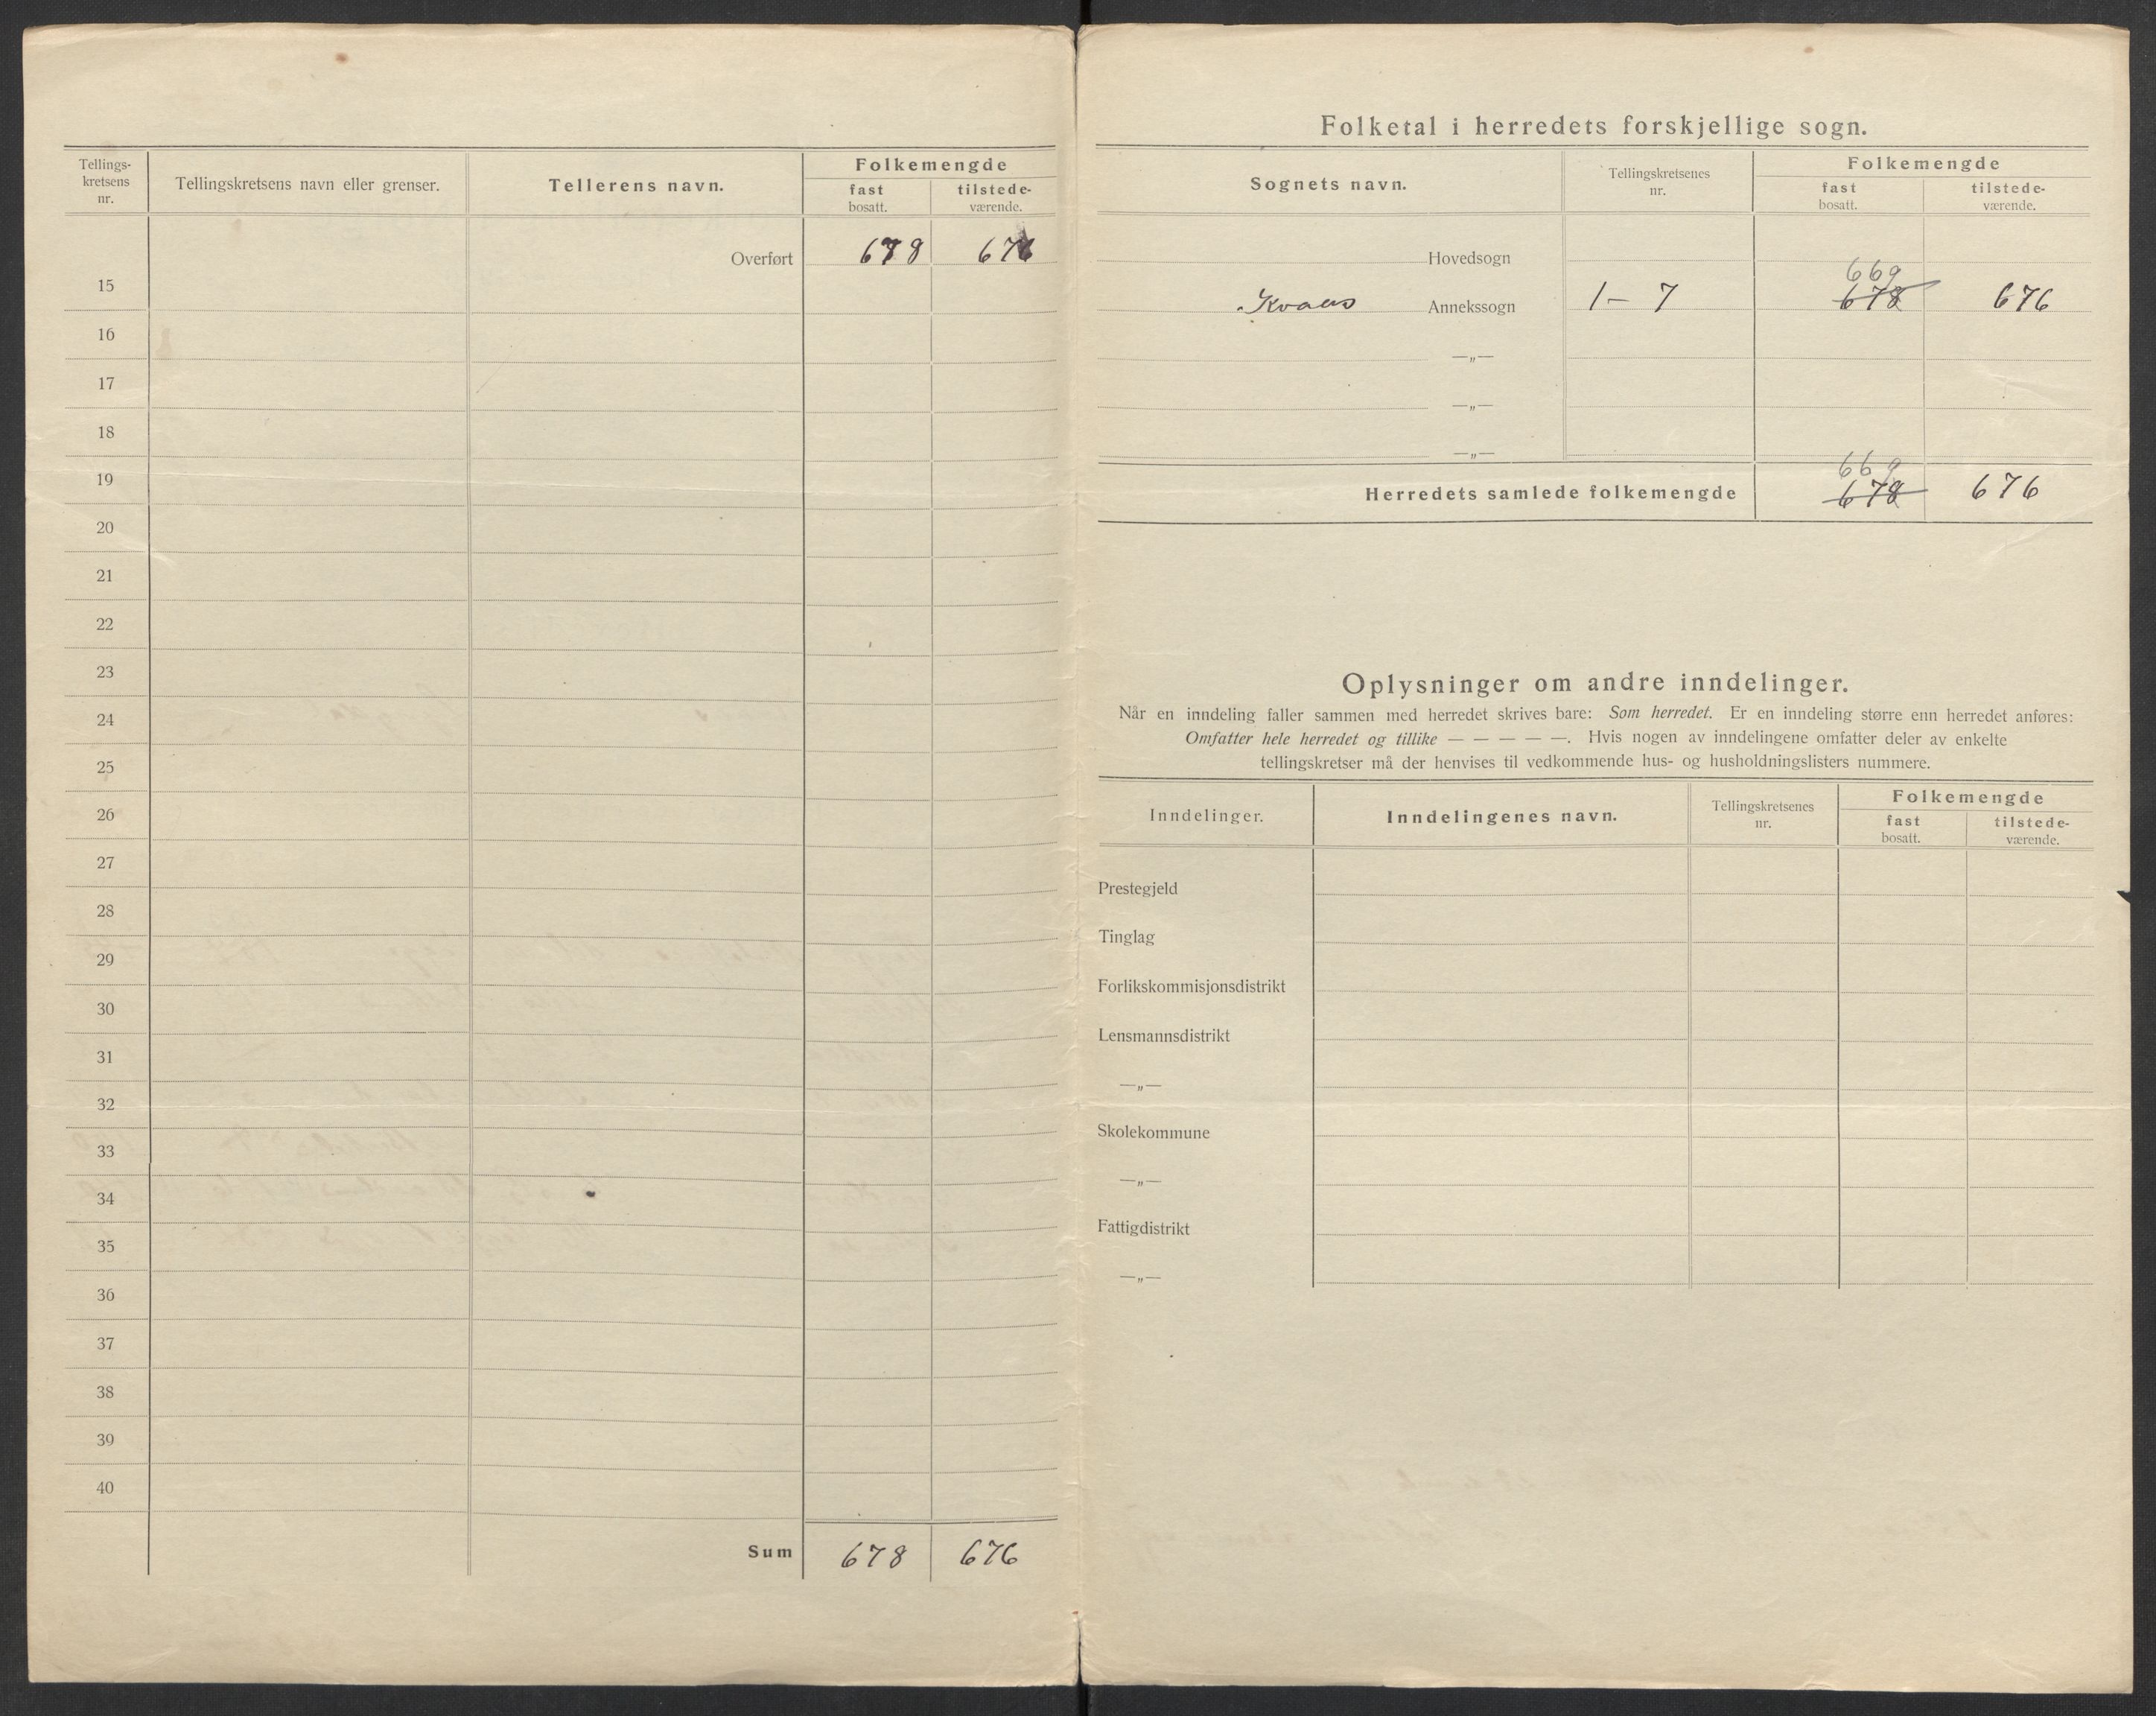 Tellings-
kretsens
nr.
Tellingskretsens navn eller grenser.
Tellerens navn.
Folkemengde
fast
bosatt.
tilstede-
værende.
Overført 678 676
15
16
17
18
19
20
21
22
23
24
25
26
27
28
29
30
31
32
33
34
35
36
37
38
39
40
Sum 678 676
Folketal i herredets forskjellige sogn.
Sognets navn.
Tellingskretsenes
nr.
Folkemengde
fast
bosatt.
tilstede-
værende.
Hovedsogn
669
Kvaas Annekssogn 1-7 678 676
—„—
—„—
—„—
669
Herredets samlede folkemengde 678 676
Oplysninger om andre inndelinger.
Når en inndeling faller sammen med herredet skrives bare: Som herredet. Er en inndeling større enn herredet anføres:
Omfatter hele herredet og tillike — — — — —. Hvis nogen av inndelingene omfatter deler av enkelte
tellingskretser må der henvises til vedkommende hus- og husholdningslisters nummere.
Inndelinger.
Inndelingenes navn.
Tellingskretsenes
nr.
Folkemengde
fast
bosatt.
tilstede-
værende.
Prestegjeld
Tinglag
Forlikskommisjonsdistrikt
Lensmannsdistrikt
—„—
Skolekommune
—„—
Fattigdistrikt
—„—